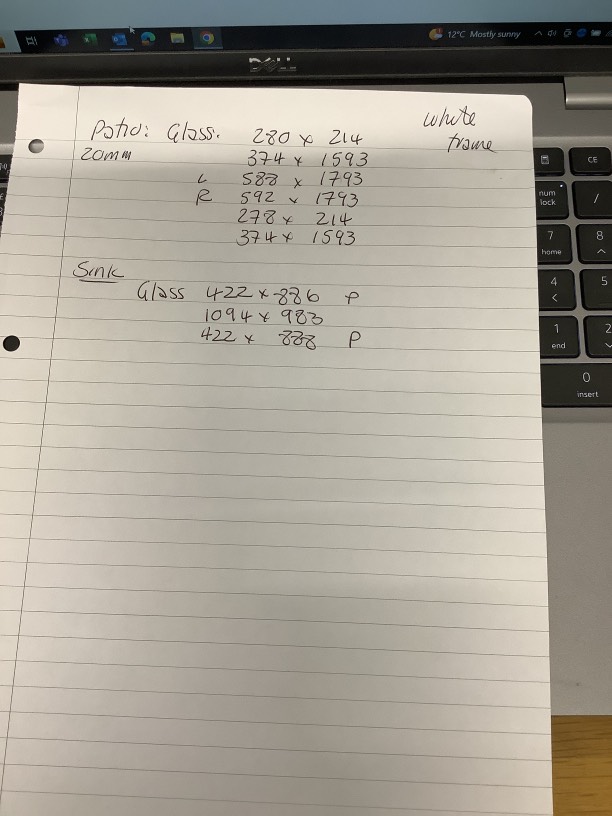 12°C Mostly sunny
DELL
White
frame
Patio: Glass. 280 x 214
20mm 374 x 1593
L 588 x 1793
R 592 x 1793
278 x 214
374 x 1593
Sink
Glass 422 x 886 P
1094 x 983
422 x 888 P
CE
num
lock
/
7
home
8
4
5
1
end
2
0
insert